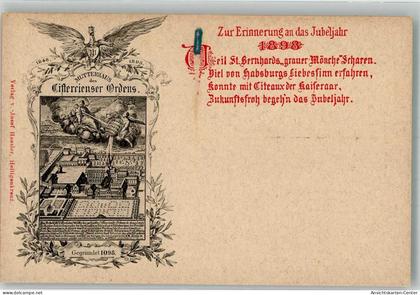 Zur Erinnerung an das Jubeljahr
1898
Weil St. Bernhards „grauer Mönche“ Scharen
Viel von Habsburgs Liebessinn erfahren,
Konnte mit Citeaux der Kaiseraar
Zukunftsfroh begeh'n das Jubeljahr.
1848 1898
MUTTERHAUS
des
Cistercienser Ordens.
Gegründet 1098.
Verlag v. Josef Heiligenkreuz.
© Ansichtskarten-Center